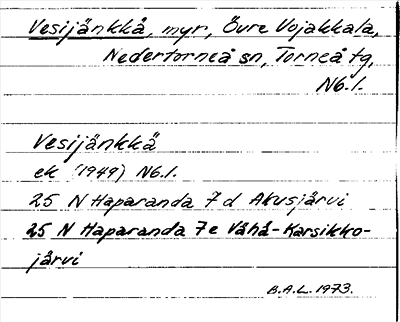 Vesijänkkä, myr, Övre Vojakkala,
Nedertorneå sn, Torneå tg,
Nb.l.
Vesijänkkä
ek (1949) Nb.l.
25 N Haparanda 7d Akusjärvi
25 N Haparanda 7e Vähä-Karsikko-
järvi
B.A.L. 1973.